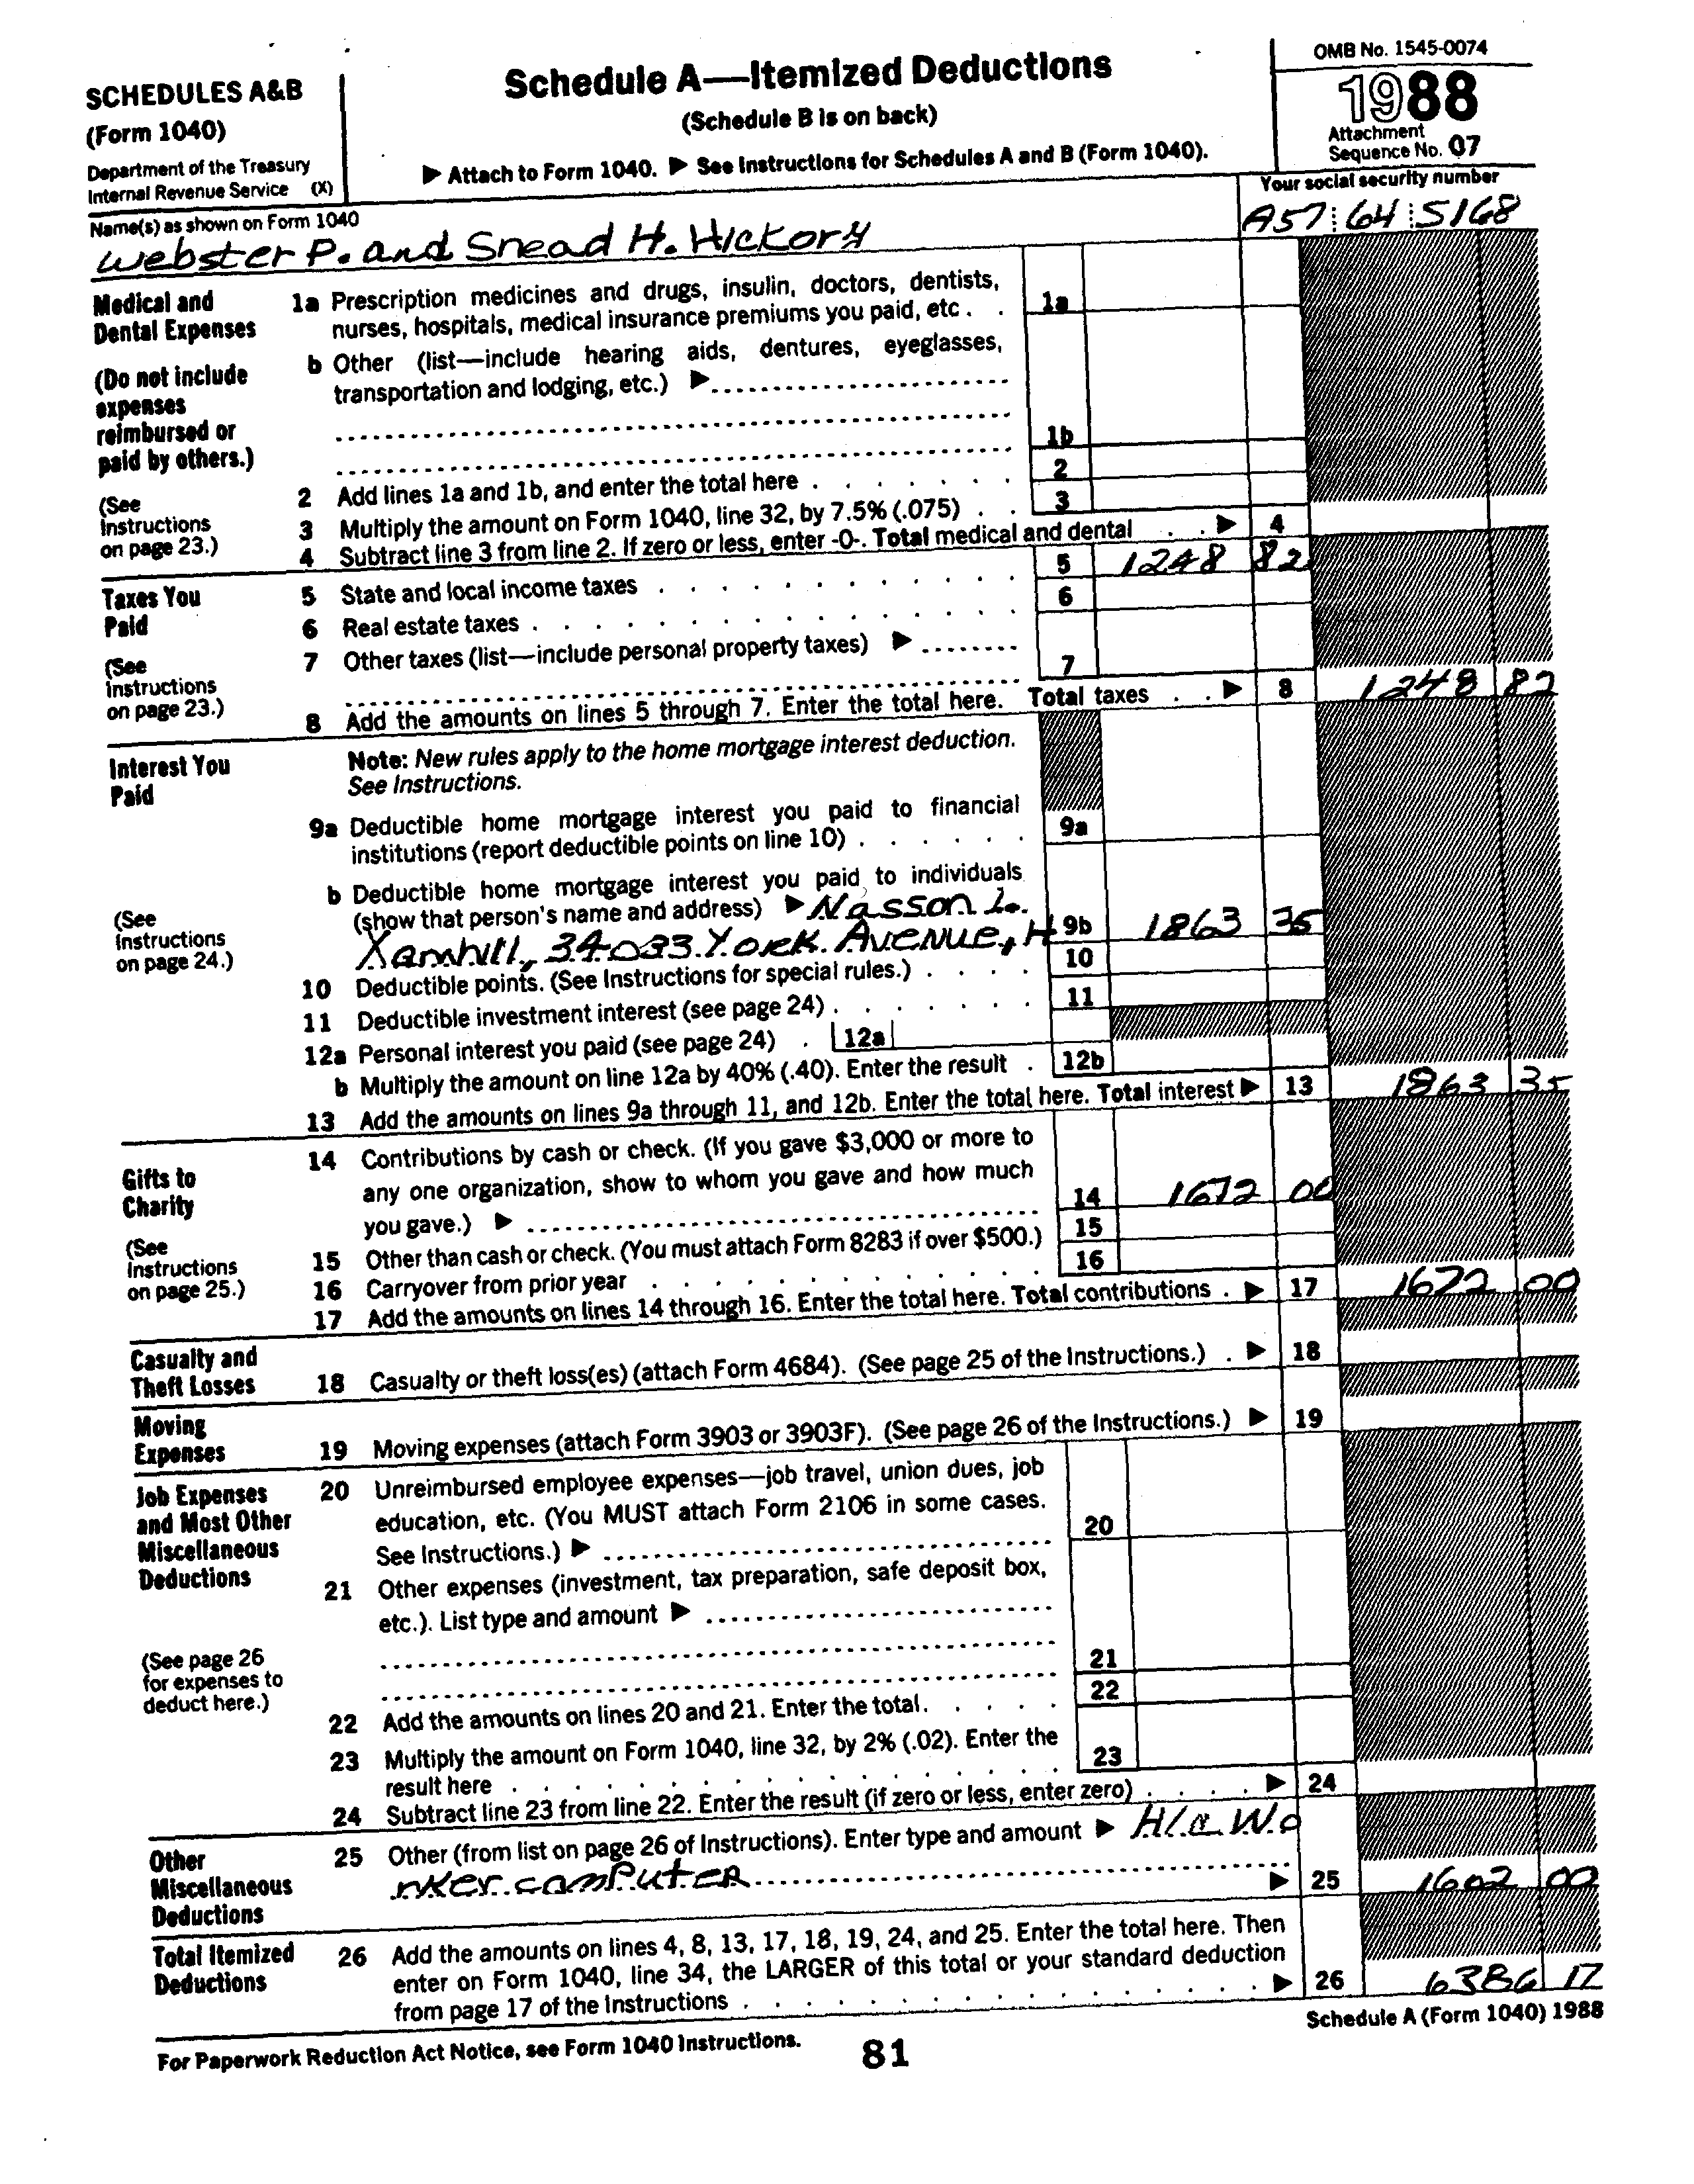 SCHEDULES A&B
(Form 1040)
Department of the Treasury
Internal Revenue Service (X)
Schedule A—Itemized Deductions
(Schedule B is on back)
▶ Attach to Form 1040. ▶ See Instructions for Schedules A and B (Form 1040).
OMB No. 1545-0074
1988
Attachment
Sequence No. 07
Name(s) as shown on Form 1040
Your social security number
Webster P. and Snead H. Hickory
A57 64 5168
Medical and
Dental Expenses
(Do not include
expenses
reimbursed or
paid by others.)
(See
Instructions
on page 23.)
1a Prescription medicines and drugs, insulin, doctors, dentists,
nurses, hospitals, medical insurance premiums you paid, etc. . 1a
b Other (list—include hearing aids, dentures, eyeglasses,
transportation and lodging, etc.) ▶
1b
2 Add lines 1a and 1b, and enter the total here 2
3 Multiply the amount on Form 1040, line 32, by 7.5% (.075) . . 3
4 Subtract line 3 from line 2. If zero or less, enter -0-. Total medical and dental . . ▶ 4
Taxes You
Paid
(See
Instructions
on page 23.)
5 State and local income taxes 5 1248 82
6 Real estate taxes 6
7 Other taxes (list—include personal property taxes) ▶
7
8 Add the amounts on lines 5 through 7. Enter the total here. Total taxes . . ▶ 8 1248 82
Interest You
Paid
(See
Instructions
on page 24.)
Note: New rules apply to the home mortgage interest deduction.
See Instructions.
9a Deductible home mortgage interest you paid to financial
institutions (report deductible points on line 10) 9a
b Deductible home mortgage interest you paid to individuals
(show that person's name and address) ▶ Nasson L.
Xamhill, 34033 York Avenue, H 9b 1863 35
10 Deductible points. (See Instructions for special rules.) 10
11 Deductible investment interest (see page 24) 11
12a Personal interest you paid (see page 24) . 12a
b Multiply the amount on line 12a by 40% (.40). Enter the result . 12b
13 Add the amounts on lines 9a through 11, and 12b. Enter the total here. Total interest ▶ 13 1863 35
Gifts to
Charity
(See
Instructions
on page 25.)
14 Contributions by cash or check. (If you gave $3,000 or more to
any one organization, show to whom you gave and how much
you gave.) ▶ 14 1672 00
15 Other than cash or check. (You must attach Form 8283 if over $500.) 15
16 Carryover from prior year 16
17 Add the amounts on lines 14 through 16. Enter the total here. Total contributions . ▶ 17 1672 00
Casualty and
Theft Losses
18 Casualty or theft loss(es) (attach Form 4684). (See page 25 of the Instructions.) . ▶ 18
Moving
Expenses
19 Moving expenses (attach Form 3903 or 3903F). (See page 26 of the Instructions.) ▶ 19
Job Expenses
and Most Other
Miscellaneous
Deductions
(See page 26
for expenses to
deduct here.)
20 Unreimbursed employee expenses—job travel, union dues, job
education, etc. (You MUST attach Form 2106 in some cases.
See Instructions.) ▶ 20
21 Other expenses (investment, tax preparation, safe deposit box,
etc.). List type and amount ▶
21
22 Add the amounts on lines 20 and 21. Enter the total. 22
23 Multiply the amount on Form 1040, line 32, by 2% (.02). Enter the
result here 23
24 Subtract line 23 from line 22. Enter the result (if zero or less, enter zero) ▶ 24
Other
Miscellaneous
Deductions
25 Other (from list on page 26 of Instructions). Enter type and amount ▶ H/c Wo
rker computer ▶ 25 1602 00
Total Itemized
Deductions
26 Add the amounts on lines 4, 8, 13, 17, 18, 19, 24, and 25. Enter the total here. Then
enter on Form 1040, line 34, the LARGER of this total or your standard deduction
from page 17 of the Instructions ▶ 26 6386 17
For Paperwork Reduction Act Notice, see Form 1040 Instructions.
81
Schedule A (Form 1040) 1988